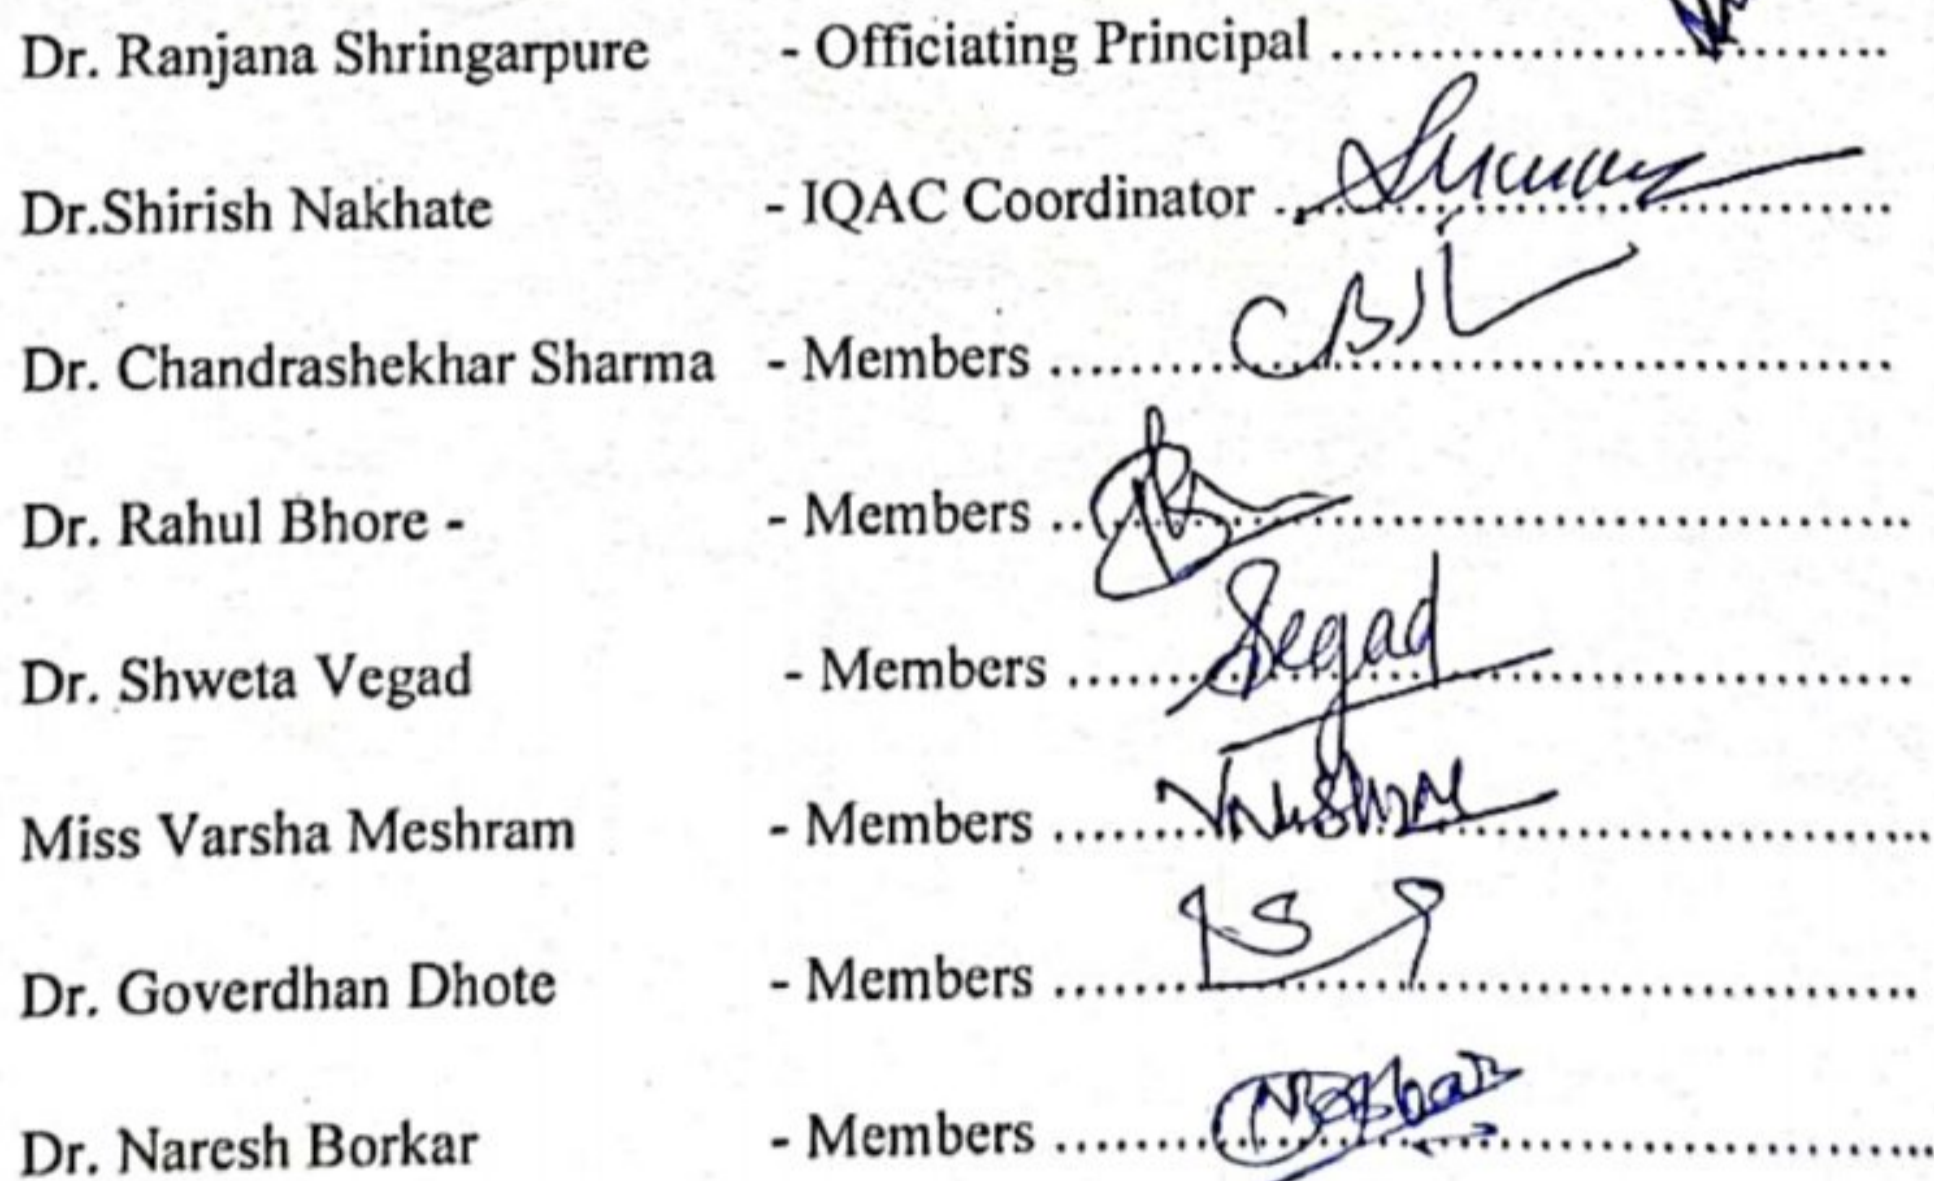 Dr. Ranjana Shringarpure - Officiating Principal ............................
Dr.Shirish Nakhate - IQAC Coordinator ............................
Dr. Chandrashekhar Sharma - Members ............................
Dr. Rahul Bhore - - Members ............................
Dr. Shweta Vegad - Members ............................ Segad
Miss Varsha Meshram - Members ............................
Dr. Goverdhan Dhote - Members ............................
Dr. Naresh Borkar - Members ............................